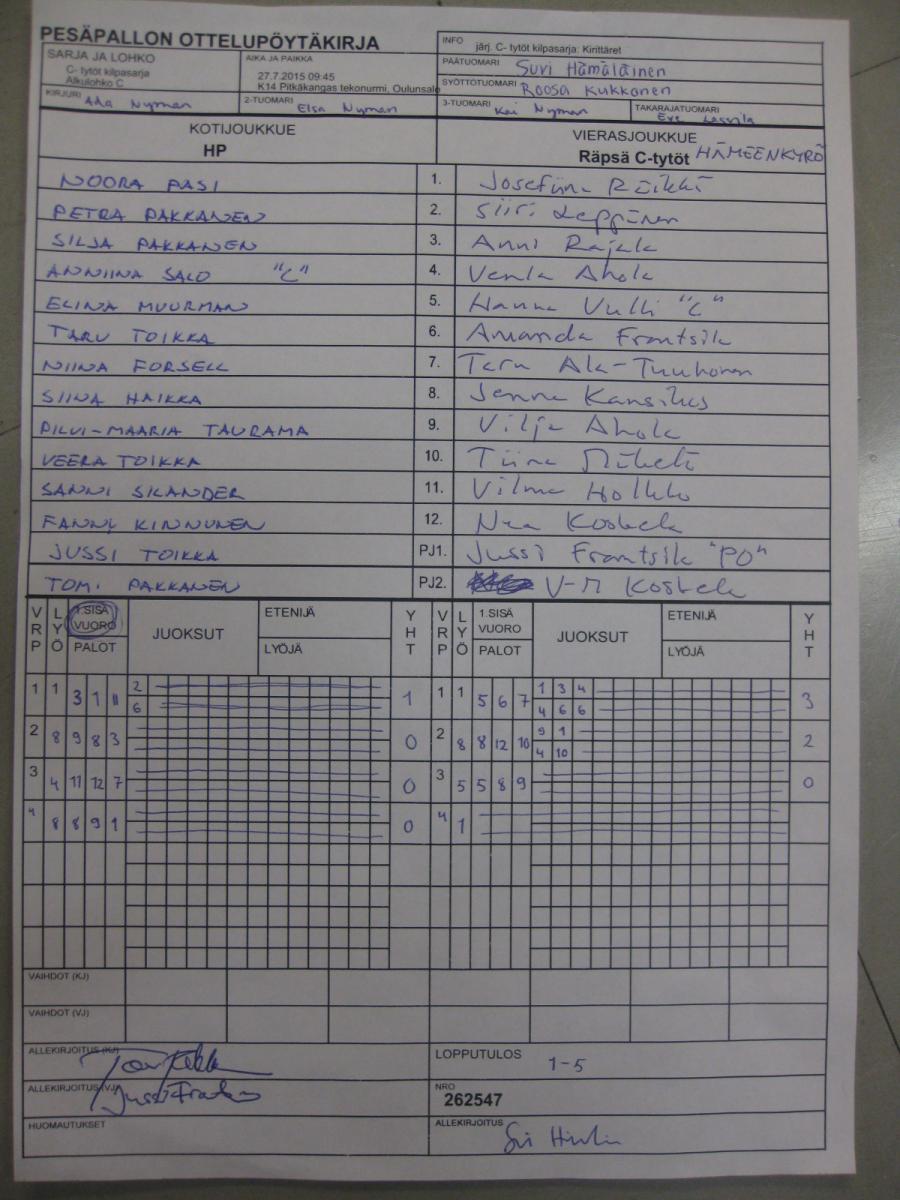 PESÄPALLON OTTELUPÖYTÄKIRJA
INFO järj. C- tytöt kilpasarja: Kirittäret
SARJA JA LOHKO
C- tytöt kilpasarja
Alkulohko C
AIKA JA PAIKKA
27.7.2015 09:45
K14 Pitkäkangas tekonurmi, Oulunsalo
PÄÄTUOMARI Suvi Hämäläinen
SYÖTTÖTUOMARI Roosa Kukkonen
KIRJURI Ada Nyman
2-TUOMARI Elsa Nyman
3-TUOMARI Kai Nyman
TAKARAJATUOMARI Eve
KOTIJOUKKUE
HP
VIERASJOUKKUE
Räpsä C-tytöt HÄMEENKYRÖ
NOORA PASI 1. Josefiina Räikkö
PETRA PAKKANEN 2. Siiri Leppänen
SILJA PAKKANEN 3. Anni Rajala
ANNIINA SALO "C" 4. Venla Ahola
ELINA MUURMAN 5. Hanna Vulli "C"
TARU TOIKKA 6. Amanda Frantsila
NIINA FORSELL 7. Taru Ala-Tuuhonen
SIINA HAIKKA 8. Jenna Kansikas
PILVI-MAARIA TAURAMA 9. Vilja Ahola
VEERA TOIKKA 10. Tiina Mäkelä
SANNI SILANDER 11. Vilma Holkko
FANNY KINNUNEN 12. Nea Koskela
JUSSI TOIKKA PJ1. Jussi Frantsila "PO"
TOMI PAKKANEN PJ2. V-M Koskela
VRP LYÖ 1.SISÄ VUORO PALOT JUOKSUT ETENIJÄ LYÖJÄ YHT VRP LYÖ 1.SISÄ VUORO PALOT JUOKSUT ETENIJÄ LYÖJÄ YHT
1 1 3 1 11 2 1 1 1 5 6 7 1 3 4 3
6 4 6 6
2 8 9 8 3 0 2 8 8 12 10 9 1 2
4 10
3 4 11 12 7 0 3 5 5 8 9 0
4 8 8 9 1 0 4 1
VAIHDOT (KJ)
VAIHDOT (VJ)
ALLEKIRJOITUS (KJ)
LOPPUTULOS 1-5
ALLEKIRJOITUS (VJ) Jussi Frantsila
NRO
262547
HUOMAUTUKSET
ALLEKIRJOITUS